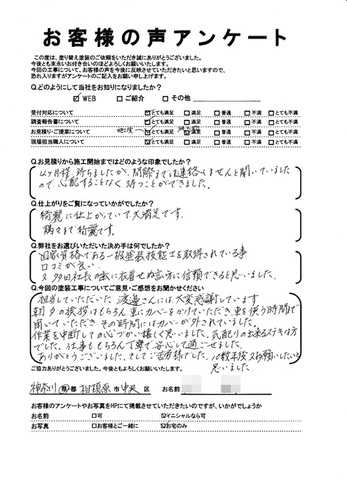 お客様の声アンケート
この度は、塗り替え塗装のご依頼をいただき誠にありがとうございました。
今後とも末永いお付き合いのほどよろしくお願いいたします。
今回の工事について、お客様の声を今後に反映させていただきたいと思いますので、
恐れ入りますがアンケートのご記入をお願い申し上げます。
Q.どのようにして当社をお知りになりましたか?
☑ WEB □ ご紹介 □ その他
受付対応について ☑とても満足 □満足 □普通 □不満 □とても不満
調査報告書について ☑とても満足 □満足 □普通 □不満 □とても不満
お見積り・ご提案について ☑とても満足 □満足 □普通 □不満 □とても不満
現場担当職人について ☑とても満足 □満足 □普通 □不満 □とても不満
Q.お見積りから施工開始まではどのような印象でしたか?
4ヶ月程、待ちましたが、間際まで連絡しませんと聞いていました
ので、心配することなく待つことができました。
Q.仕上がりをご覧になっていかがでしたか?
綺麗に仕上がっていて大満足です。
隅々まで綺麗です。
Q.弊社をお選びいただいた決め手は何でしたか?
国家資格である一級塗装技能士を取得されている事
口コミが良い
Q.今回の塗装工事についてご意見・ご感想をお聞かせください
担当していただいた渡邉さんには大変感謝しています
朝夕の挨拶はもちろん車にカバーをかけていただき、車を使う時間を
聞いていただき、その時間にはカバーが外されていました。
作業を中断しての心づかい嬉しく思いました。気配りの出来る方は
でした。仕事ももちろん丁寧で安心して過ごせました。
ありがとうございました。そしてご苦労様でした。10数年後又お願いしたいと
思いました。
ご協力ありがとうございました。今後ともよろしくお願いいたします。
神奈川 県 都 相模原 市 中央 区 お名前
お客様のアンケートやお写真をHPにて掲載させていただきたいのですが、いかがでしょうか
お名前 □可 ☑イニシャルなら可
お写真 □お客様とご一緒に ☑お宅のみ